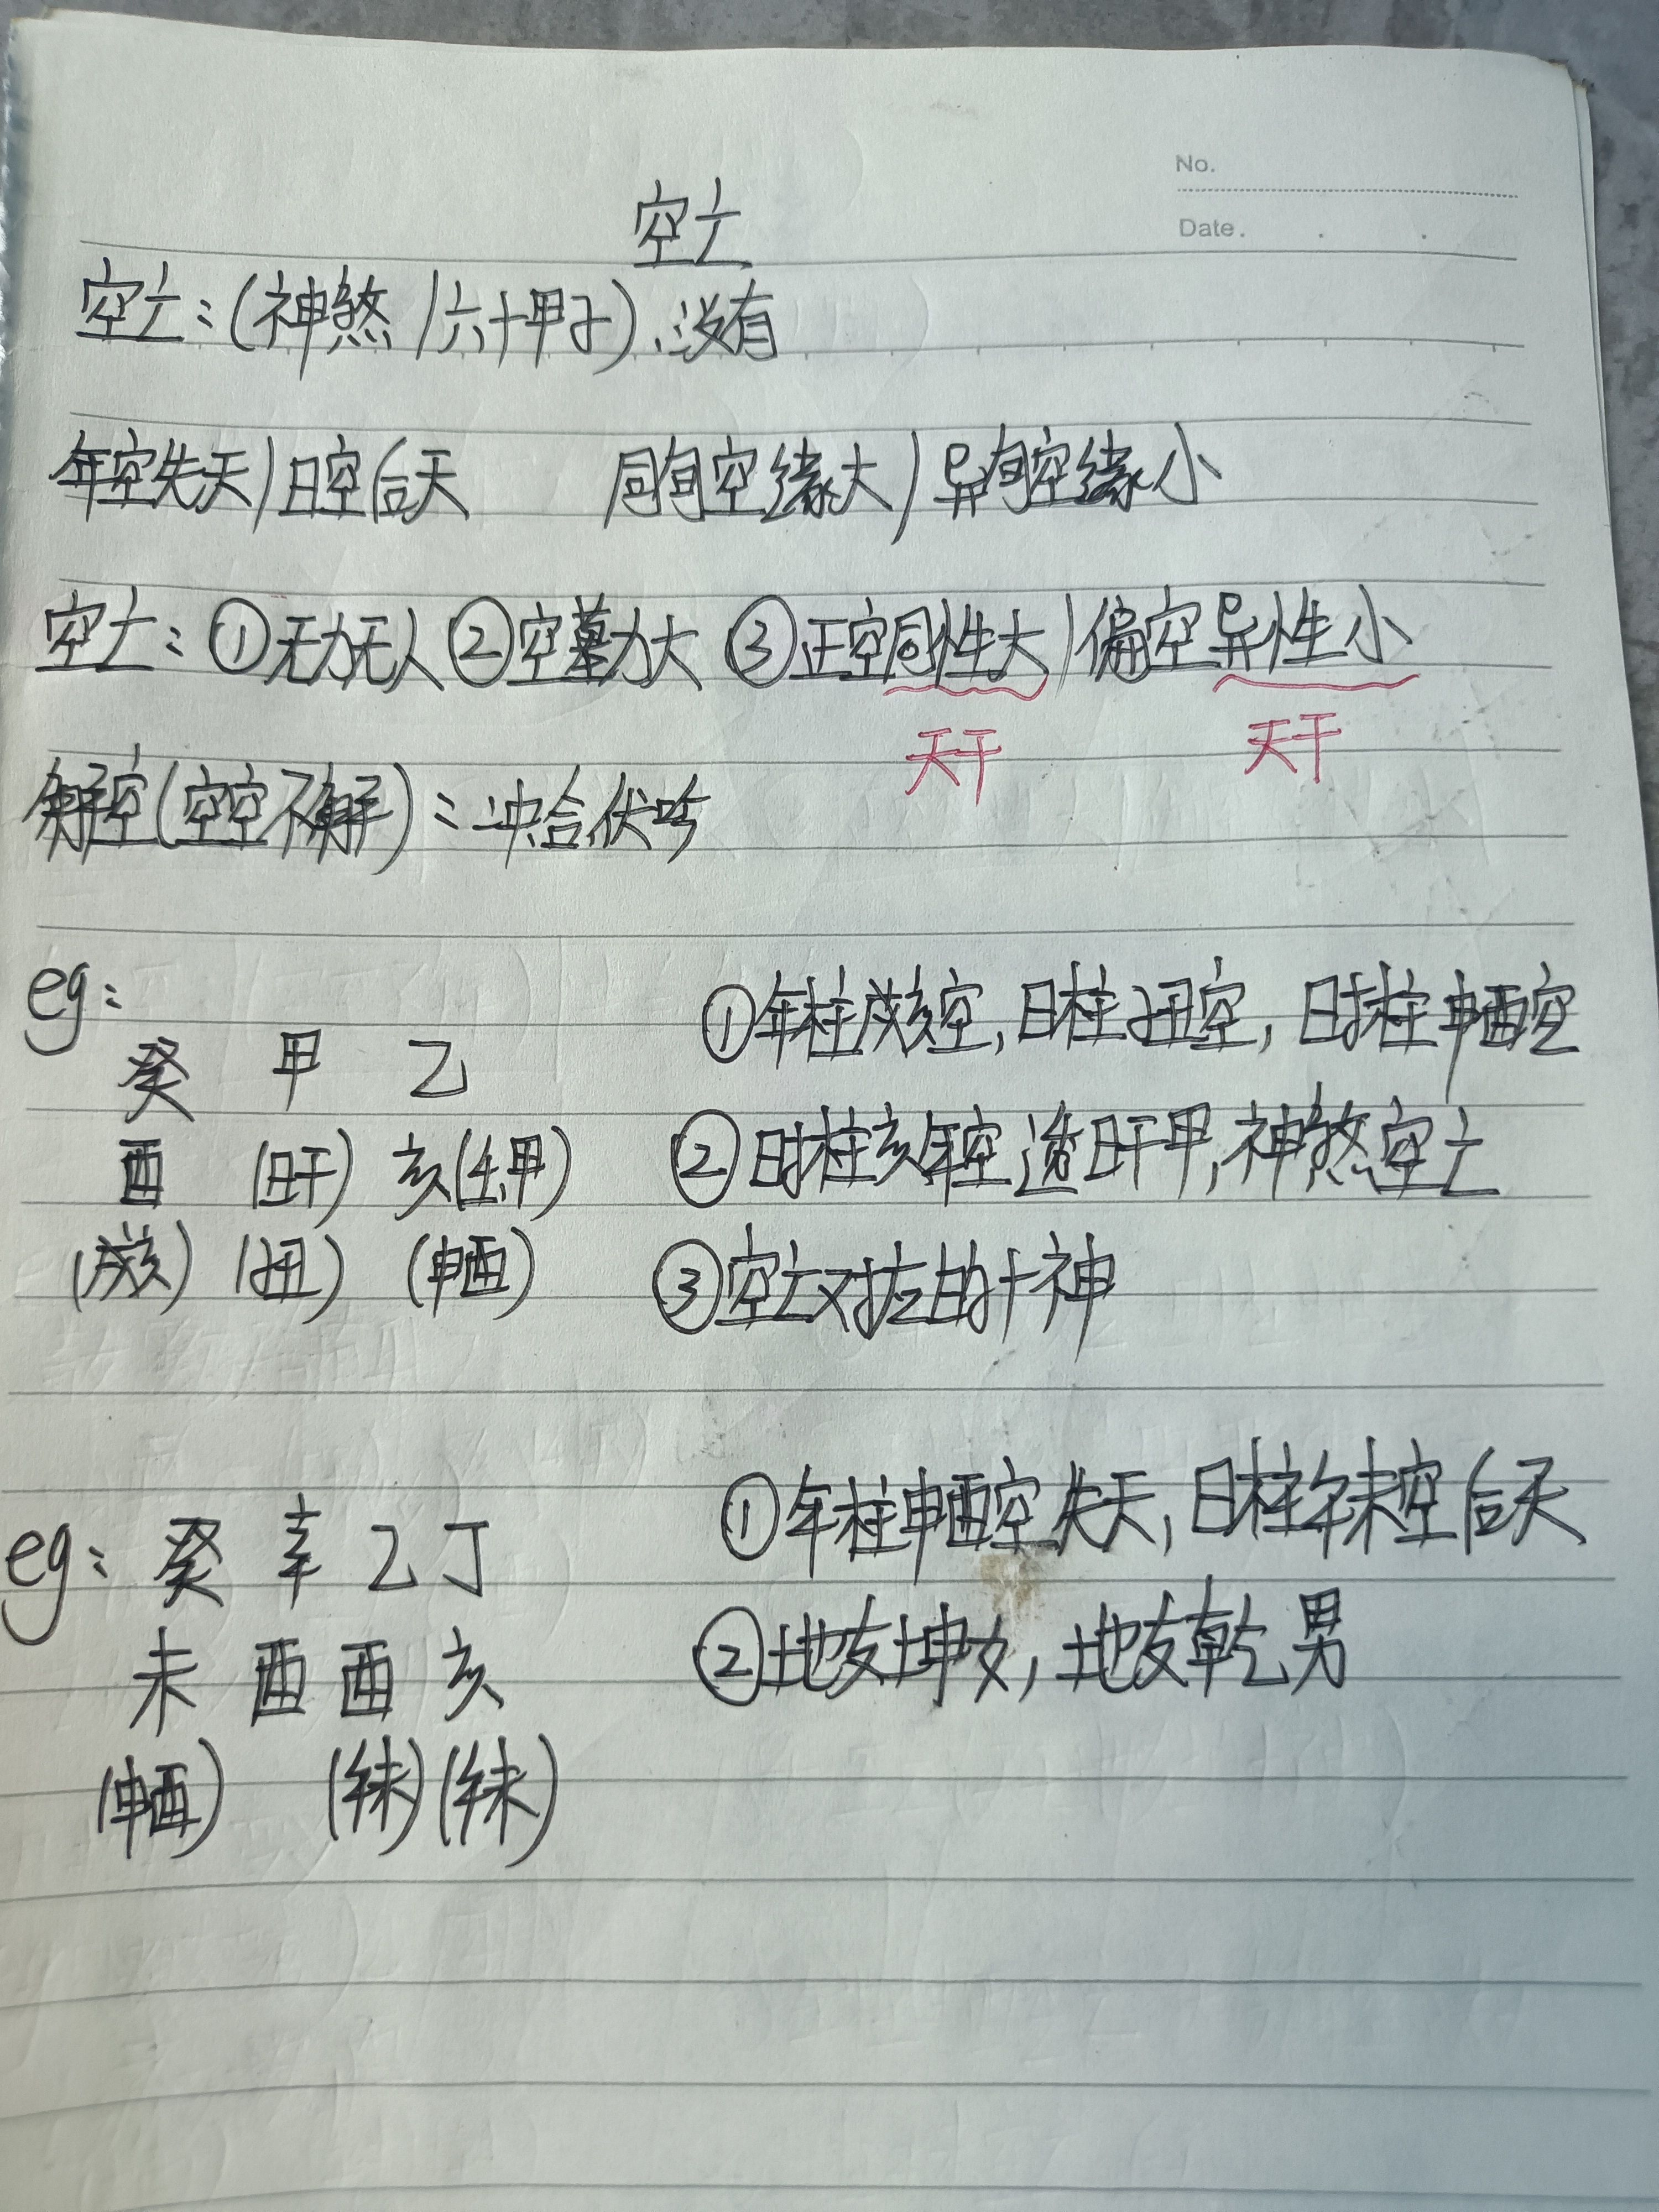 No.
Date.
空亡
空亡：(神煞/六十甲子)、没有
年空先天/日空后天 同旬空缘大/异旬空缘小
空亡：①无力无人②空墓力大 ③正空同性大/偏空异性小
天干 天干
解空(空空不解)：冲合伏吟
eg：
癸 甲 乙
酉 (时干) 亥(壬甲)
(戌亥) (子丑) (申酉)
①年柱戌亥空,日柱子丑空,时柱申酉空
②时柱亥年空透时干甲,神煞空亡
③空亡对应的十神
eg：癸 辛 乙 丁
未 酉 酉 亥
(申酉) (午未)(午未)
①年柱申酉空先天,日柱午未空后天
②地支坤女,地支乾男